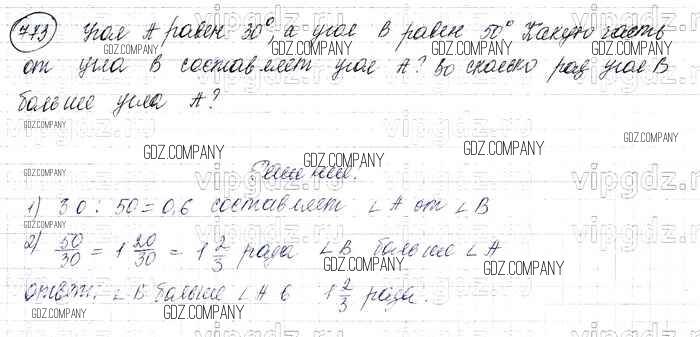 783 Угол А равен 30°, а угол В равен 50° Какую часть
от угла В составляет угол А? Во сколько раз угол В
больше угла А?
Решение.
1) 30 : 50 = 0,6 составляет ∠A от ∠B
2) 50/30 = 1 20/30 = 1 2/3 раза ∠B больше ∠A
ответ: ∠B больше ∠A в 1 2/3 раза.
GDZ.COMPANY
vipgdz.ru